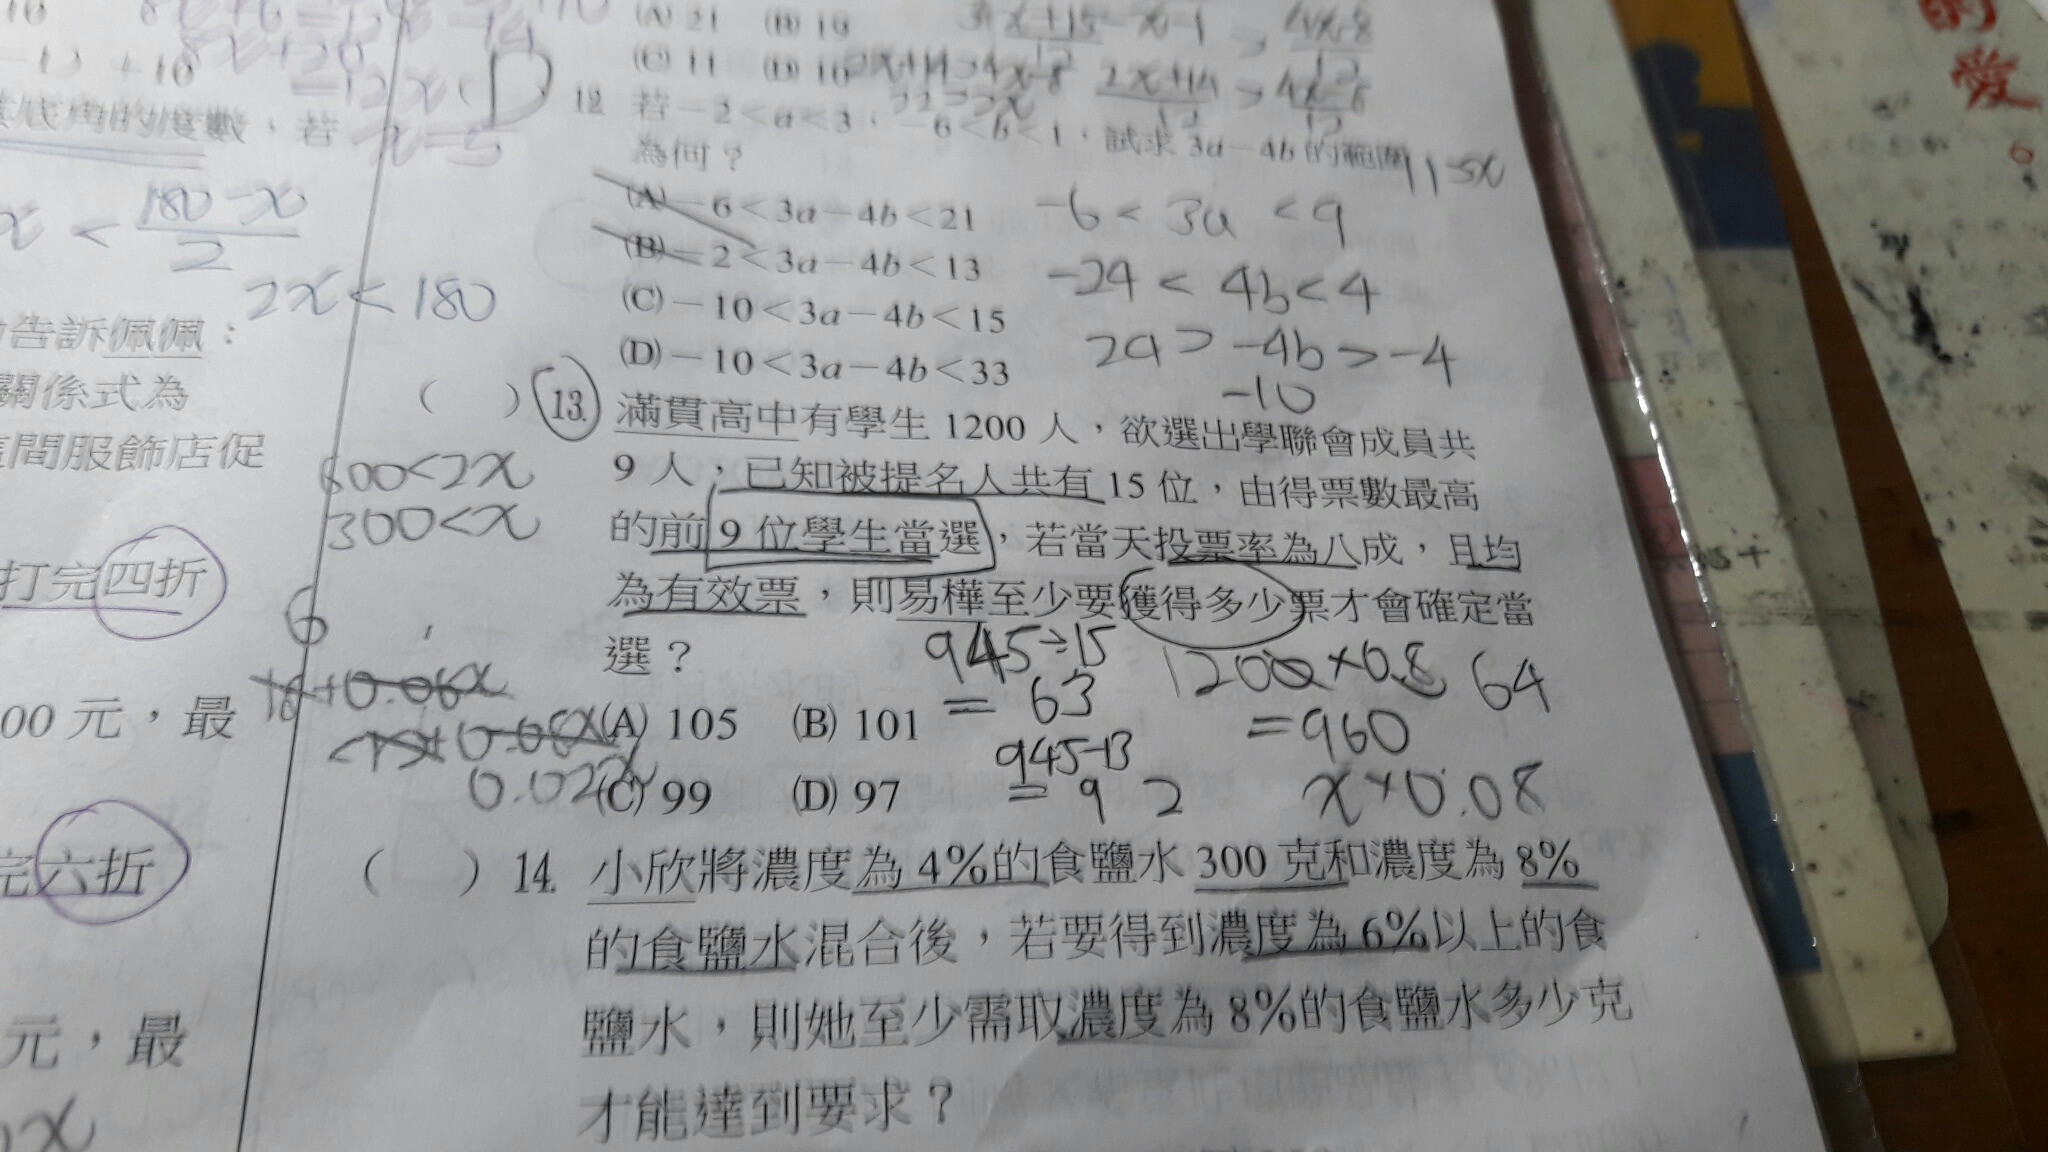 (A) 21 (B) 19
(C) 11 (D) 16
2x+14>4x-8
2x+14/12 > 4x-8/12
12. 若－2＜a＜3，－6＜b＜1，試求 3a－4b 的範圍
為何？
(A)－6＜3a－4b＜21
(B)－2＜3a－4b＜13
(C)－10＜3a－4b＜15
(D)－10＜3a－4b＜33
-6 < 3a < 9
-24 < 4b < 4
24 > -4b > -4
-10
( ) 13. 滿貫高中有學生 1200 人，欲選出學聯會成員共
9 人，已知被提名人共有 15 位，由得票數最高
的前 9 位學生當選，若當天投票率為八成，且均
為有效票，則易樺至少要獲得多少票才會確定當
選？
(A) 105 (B) 101
(C) 99 (D) 97
945÷15
= 63
945-13
= 9 2
1200×0.8
=960
64
x×0.08
( ) 14. 小欣將濃度為 4%的食鹽水 300 克和濃度為 8%
的食鹽水混合後，若要得到濃度為 6%以上的食
鹽水，則她至少需取濃度為 8%的食鹽水多少克
才能達到要求？
8x+20
=12x
x=5
底角的度數，若
x < 180-x/2
2x < 180
告訴佩佩：
關係式為
間服飾店促
600<2x
300<x
打完四折
6
00 元，最
完六折
元，最
的
愛